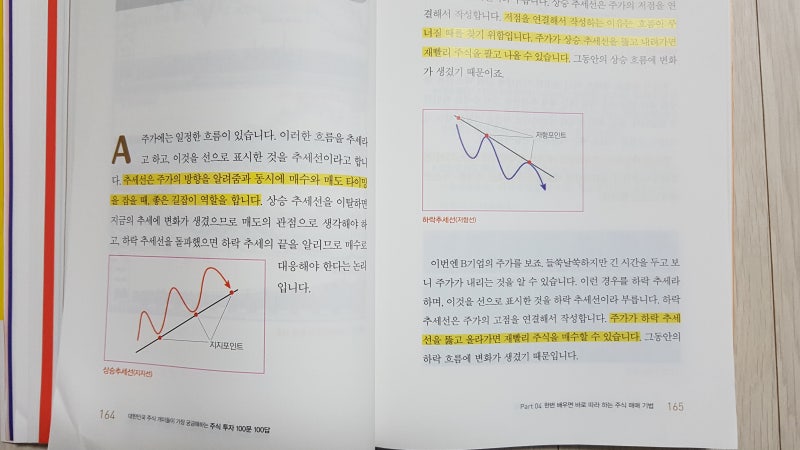 A
주가에는 일정한 흐름이 있습니다. 이러한 흐름을 추세라
고 하고, 이것을 선으로 표시한 것을 추세선이라고 합니
다. 추세선은 주가의 방향을 알려줌과 동시에 매수와 매도 타이밍
을 잡을 때, 좋은 길잡이 역할을 합니다. 상승 추세선을 이탈하면
지금의 추세에 변화가 생겼으므로 매도의 관점으로 생각해야 하
고, 하락 추세선을 돌파했으면 하락 추세의 끝을 알리므로 매수로
대응해야 한다는 논리
입니다.
지지포인트
상승추세선(지지선)
164 대한민국 주식 개미들이 가장 궁금해하는 주식 투자 100문 100답
결해서 작성합니다. 저점을 연결해서 작성하는 이유는 흐름이 무
너질 때를 찾기 위함입니다. 주가가 상승 추세선을 뚫고 내려가면
재빨리 주식을 팔고 나올 수 있습니다. 그동안의 상승 흐름에 변화
가 생겼기 때문이죠.
저항포인트
하락추세선(저항선)
이번엔 B기업의 주가를 보죠. 들쑥날쑥하지만 긴 시간을 두고 보
니 주가가 내리는 것을 알 수 있습니다. 이런 경우를 하락 추세라
하며, 이것을 선으로 표시한 것을 하락 추세선이라 부릅니다. 하락
추세선은 주가의 고점을 연결해서 작성합니다. 주가가 하락 추세
선을 뚫고 올라가면 재빨리 주식을 매수할 수 있습니다. 그동안의
하락 흐름에 변화가 생겼기 때문입니다.
Part 04 한번 배우면 바로 따라 하는 주식 매매 기법 165